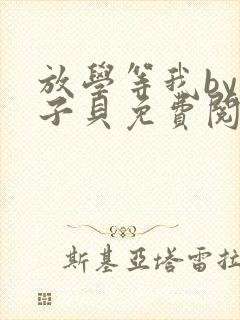 放學等我by
子貝免費閱
斯基亞塔雷拉